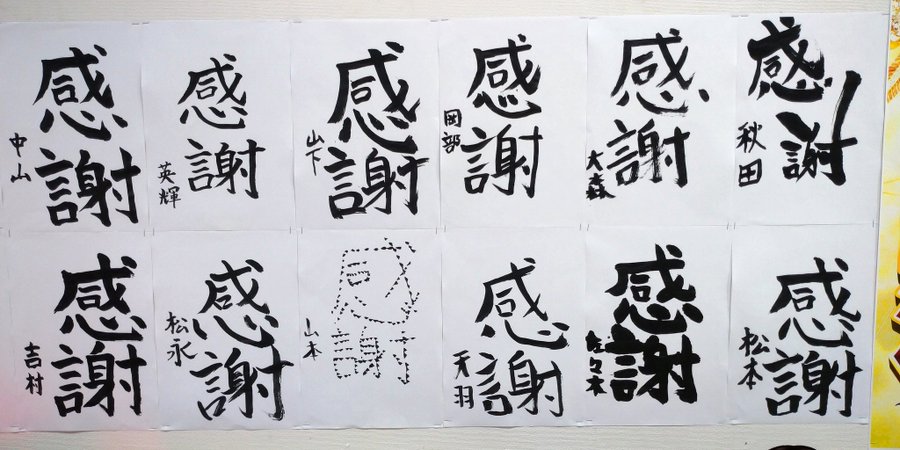 感謝
中山
感謝
英輝
感謝
山下
感謝
岡部
感謝
大森
感謝
秋田
感謝
吉村
感謝
松永
感謝
山本
感謝
天羽
感謝
佐々木
感謝
松本